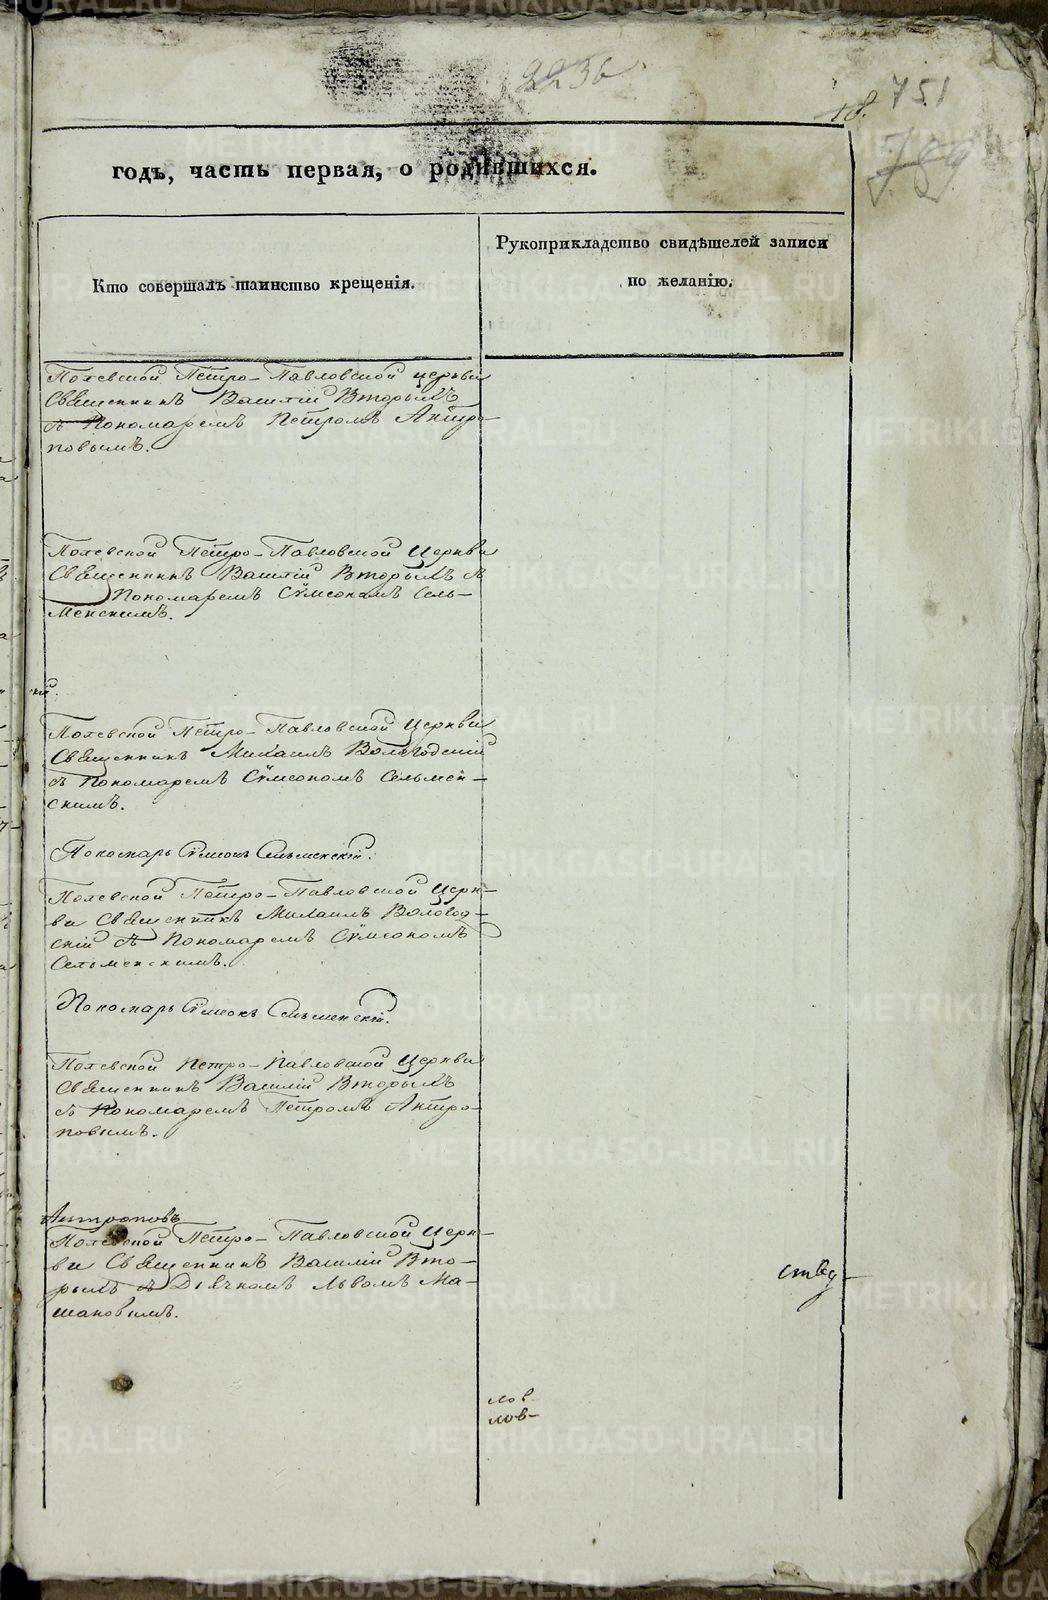 2236
18.
751
годъ, часть первая, о родившихся.
Кто совершалъ таинство крещенія.
Рукоприкладство свидѣтелей записи
по желанію.
Полевской Петро-Павловской церкви
Священникъ Василій Вторыхъ
съ Пономаремъ Петромъ Антро-
повымъ.
Полевской Петро-Павловской Церкви
Священникъ Василій Вторыхъ съ
Пономаремъ Сѵмеономъ Сель-
менскимъ.
кій.
Полевской Петро-Павловской Церкви
Священникъ Михаилъ Вологодскій
съ Пономаремъ Сѵмеономъ Сельмен-
скимъ.
Пономарь Сѵмеонъ Сельменскій.
Полевской Петро-Павловской Церк-
ви Священникъ Михаилъ Вологод-
скій съ Пономаремъ Сѵмеономъ
Сельменскимъ.
Пономарь Сѵмеонъ Сельменскій.
Полевской Петро-Павловской Церкви
Священникъ Василій Вторыхъ
съ Пономаремъ Петромъ Антро-
повымъ.
Антроповъ
Полевской Петро-Павловской Церк-
ви Священникъ Василій Вто-
рыхъ съ Дьячкомъ Львомъ Ма-
шановымъ.
лов
лов-
METRIKI.GASO-URAL.RU